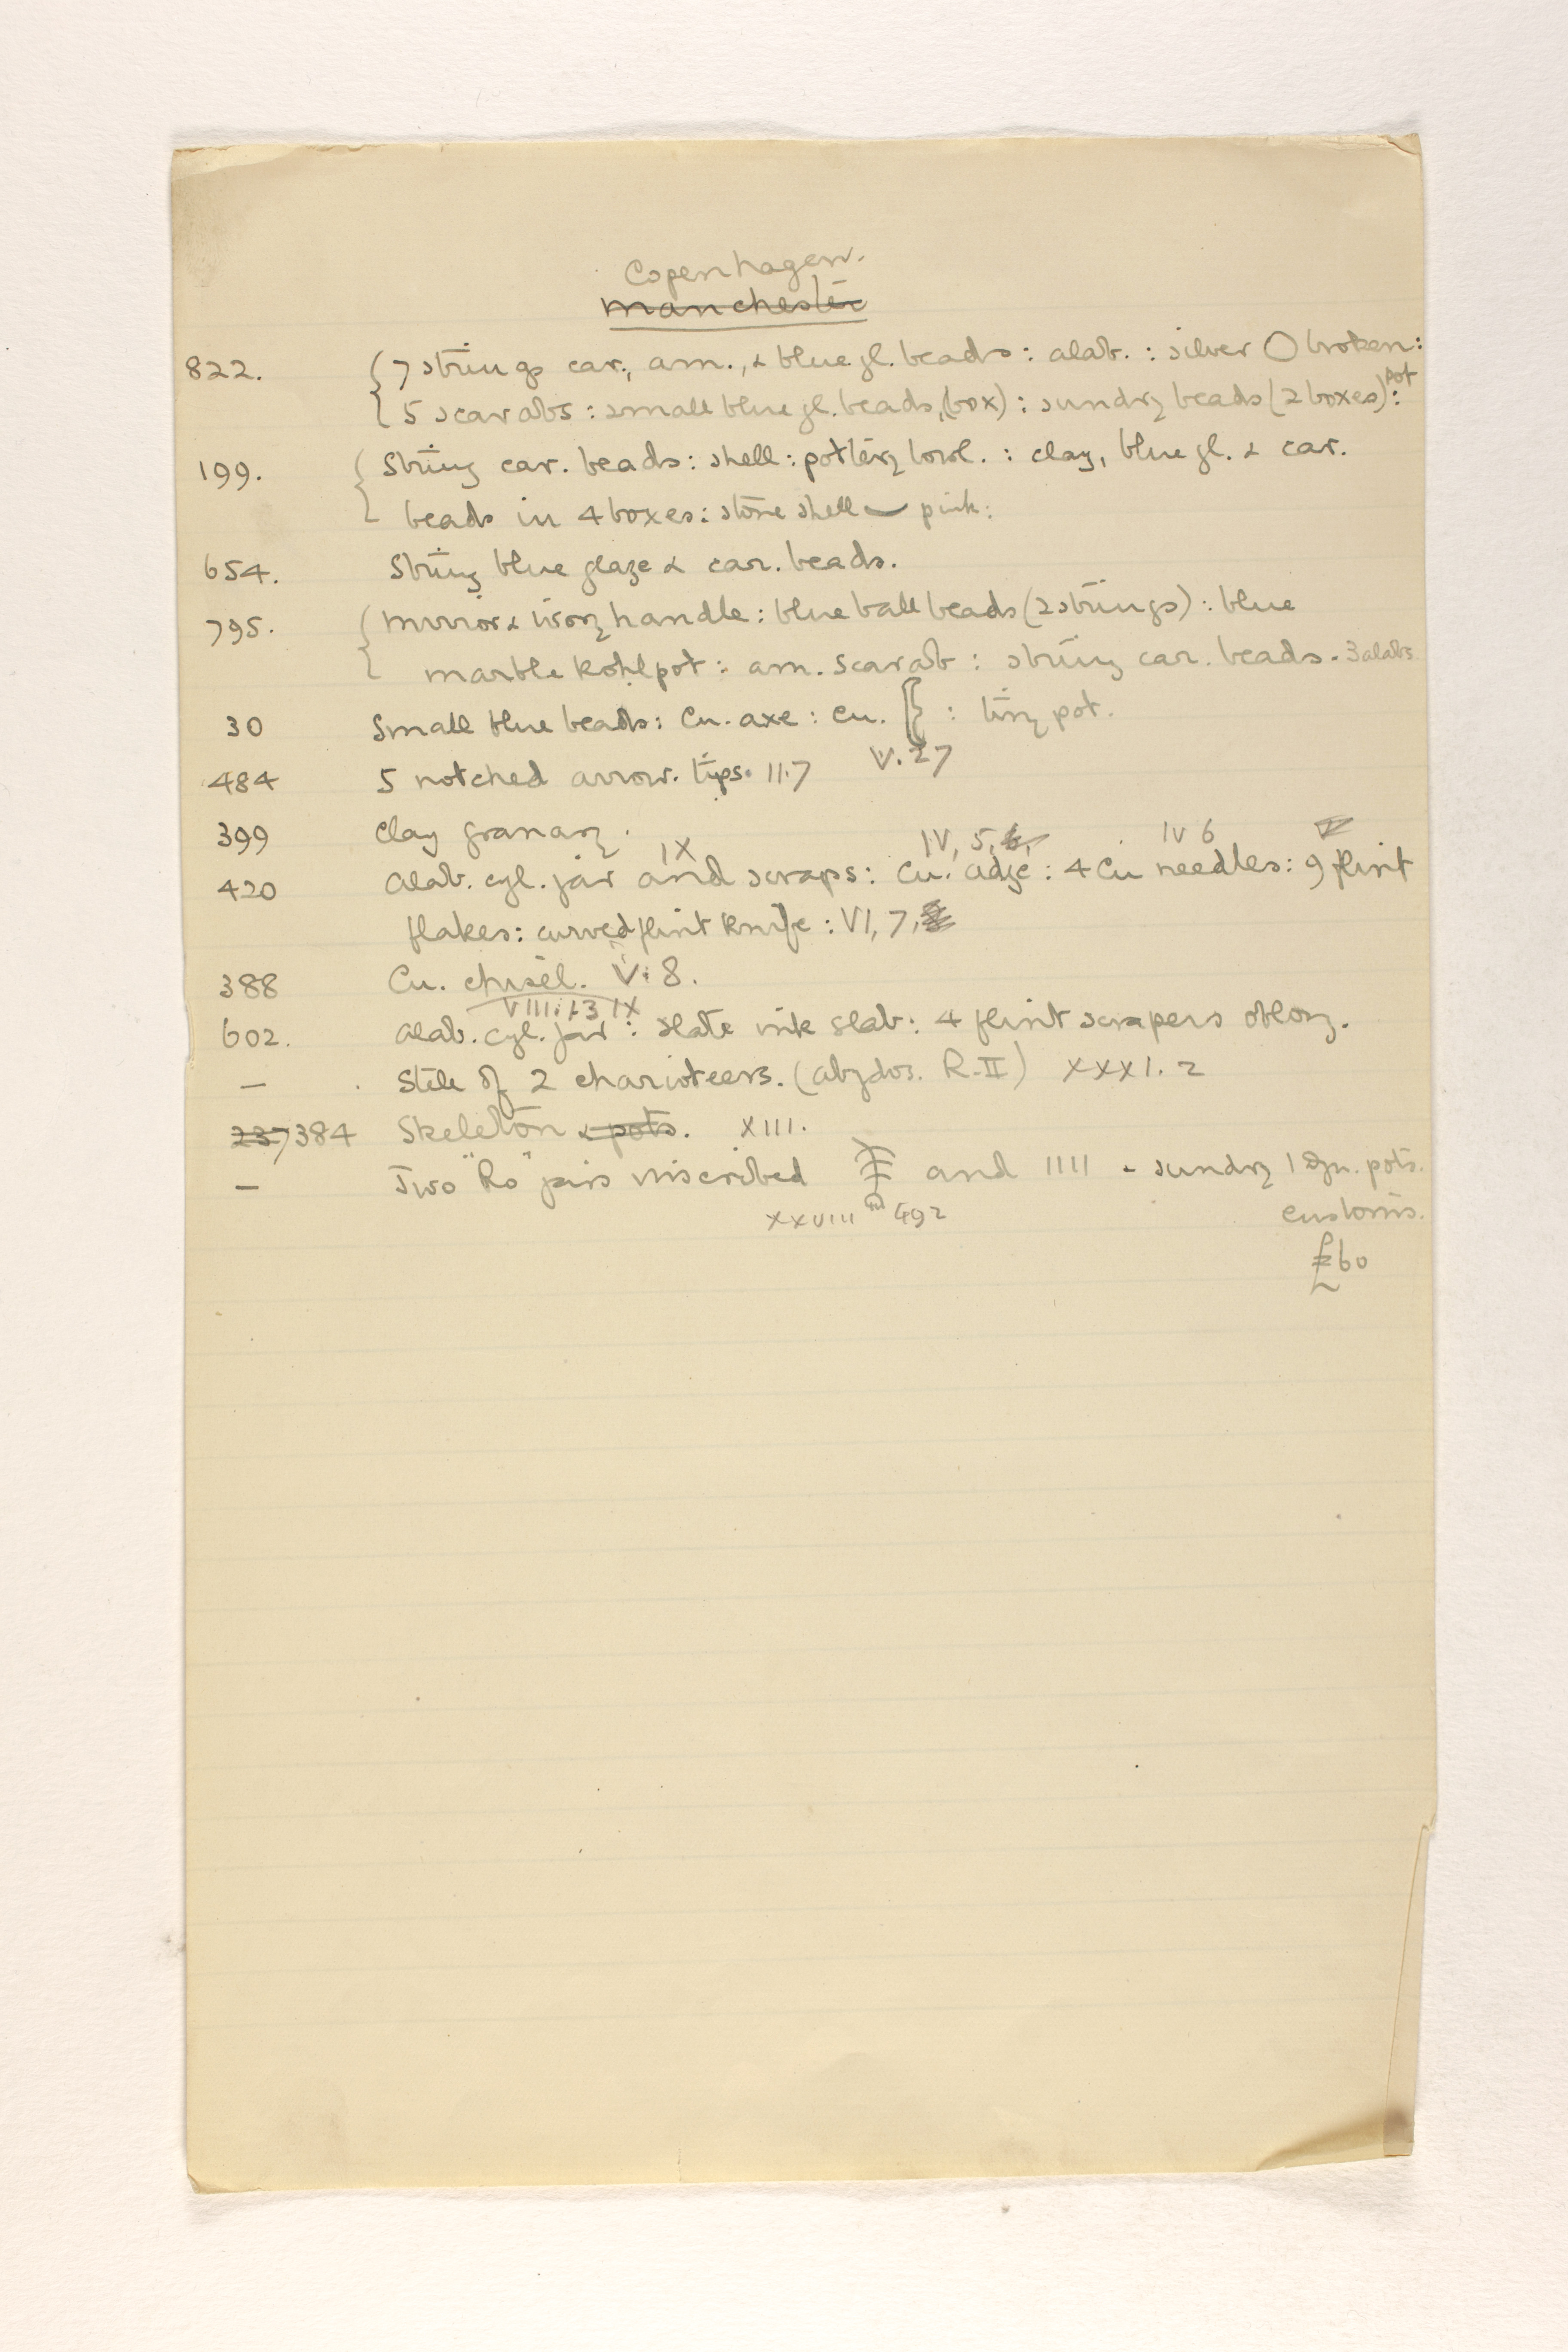 Copenhagen.
Manchester
822. { 7 strings car., am., & blue gl. beads : alab. : silver O broken :
{ 5 scarabs : small blue gl. beads, (box) : sundry beads (2 boxes) : pot
199. { String car. beads : shell : pottery bowl. : clay, blue gl. & car.
beads in 4 boxes : stone shell pink :
654. String blue glaze & car. beads.
795. { Mirror & ivory handle : blue ball beads (2 strings) : blue
marble Kohlpot : am. scarab : string car. beads. 3 alabs
30 Small blue beads : Cu. axe : Cu. : tiny pot.
V. 27
484 5 notched arrow. tips. 11.7
399 Clay granary.
IX IV, 5, IV 6 V
420 Alab. cyl. jar and scraps : Cu. adze : 4 Cu needles : 9 flint
flakes : curved flint knife : VI, 7,
388 Cu. chisel. V. 8.
VIII. 13 IX
602. Alab. cyl. jar : slate ink slab : 4 flint scrapers oblong.
— Stele of 2 charioteers. (Abydos. R-II) XXXI. 2
237 384 Skeleton & pots. XIII.
— Two "Ro" jars inscribed and IIII - sundry 1 Dyn. pots.
XXVIII 492 customs.
£60